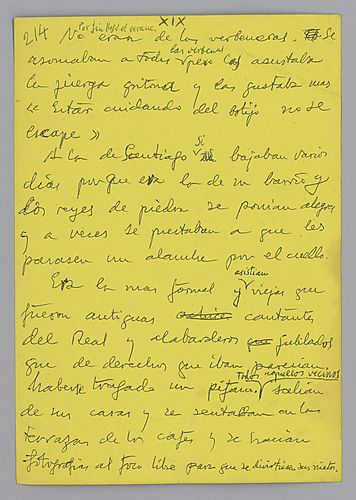 XIX
214 Por fin llegó el verano
No eran de las verbeneras. Se
las verbenas
asomaban a todas pero las asustaba
la juerga gritona y las gustaba mas
« Estar cuidando del botijo no se
escape »
A la de Santiago si bajaban varios
días porque era la de su barrio y
los reyes de piedra se ponían alegres
y a veces se prestaban a que les
pasasen un alambre por el cuello.
Era la mas formal y asistian viejas que
fueron antiguas cantantes
del Real y alabarderos jubilados
que de derechos que iban parecían
haberse tragado un pífano. Todos aquellos vecinos salian
de sus casas y se sentaban en las
terrazas de los cafés y se hacían
fotografias al foco libre para que se divirtiesen sus nietos.